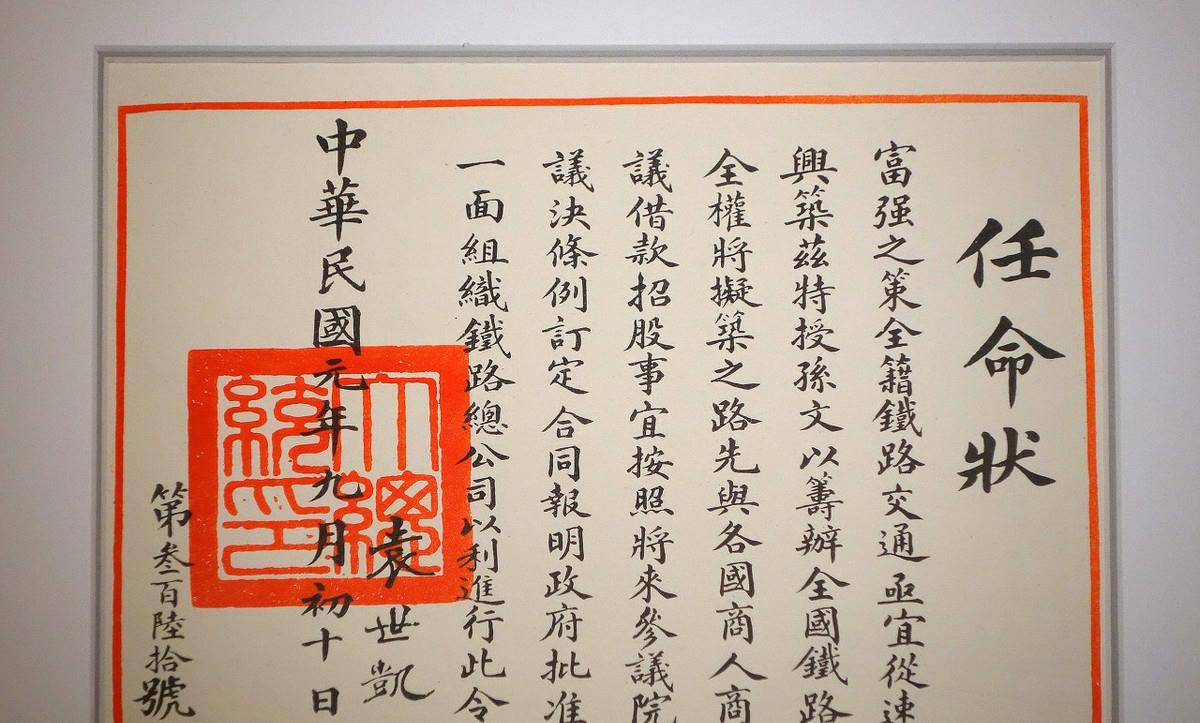 任命狀
富强之策全籍鐵路交通亟宜從速
興築茲特授孫文以籌辦全國鐵路
全權將擬築之路先與各國商人商
議借款招股事宜按照將來參議院
議決條例訂定合同報明政府批准
一面組織鐵路總公司以利進行此令
袁世凱
中華民國元年九月初十日
第叁百陸拾號
大總統印